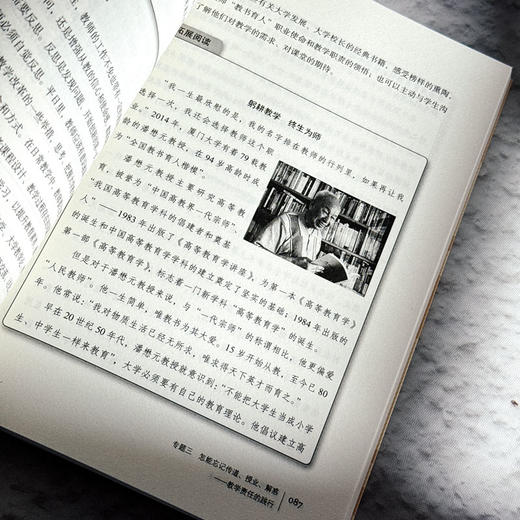 有关大学发展、大学校长的经典书籍，感受榜样的熏陶，
“教书育人”职业使命和教学职责的领悟；也可以主动与学生沟
了解他们对教学的需求、对课堂的期待。
拓展阅读
躬耕教学 终生为师
“我一生最欣慰的是，我的名字排在教师的行列里，如果再让我
选择一次，我还会选择教师这个职
业。”2014年，厦门大学有着79载教龄
的潘懋元教授，在94岁高龄时被评
为“全国教书育人楷模”。
潘懋元教授主要研究高等教
育，被誉为“中国高教第一代宗师”、
“我国高等教育学科的倡建者和奠基
人”——1983年出版了《高等教育学讲座》，为第一本《高等教育学》
的诞生和中国高等教育学学科的建立奠定了坚实的基础；1984年出版的
第一部《高等教育学》，标志着一门新学科“高等教育学”的诞生。
但是对于潘懋元教授来说，与“一代宗师”的称谓相比，他更偏爱
“人民教师”。他一生简单，唯教书为其大爱。15岁开始从教，至今已80
年。他常说：“我对物质生活已经无所求，唯求得天下英才而育之。”
早在20世纪50年代，潘懋元教授就意识到：“不能把大学生当成小学
生、中学生一样来教育”，大学必须要有自己的教育理论。他倡议建立高
专题三 怎能忘记传道、授业、解惑
——教学责任的践行
087